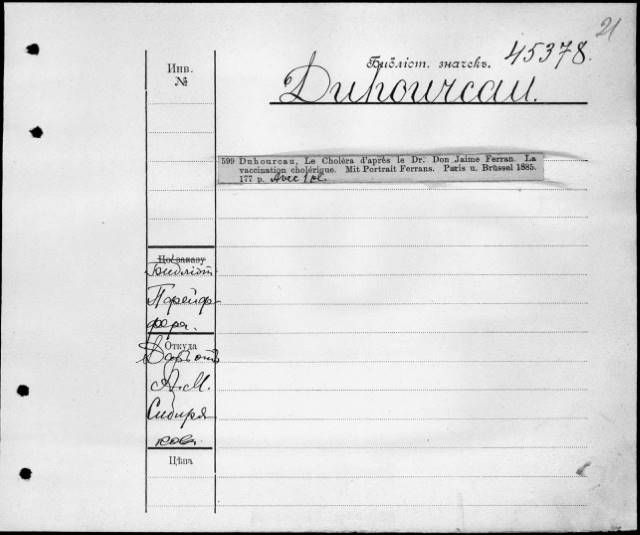 21
Библіот. значекъ. 45378.
Duhourcau.
Инв.
№
599 Duhourcau, Le Choléra d'aprés le Dr. Don Jaime Ferran. La
vaccination cholérique. Mit Portrait Ferrans. Paris u. Brüssel 1885.
177 p. Avec 1 pl.
По заказу
Библіот.
Пфейф-
фера.
Откуда
Даръ отъ
А. М.
Сибиря
кова
Цѣна